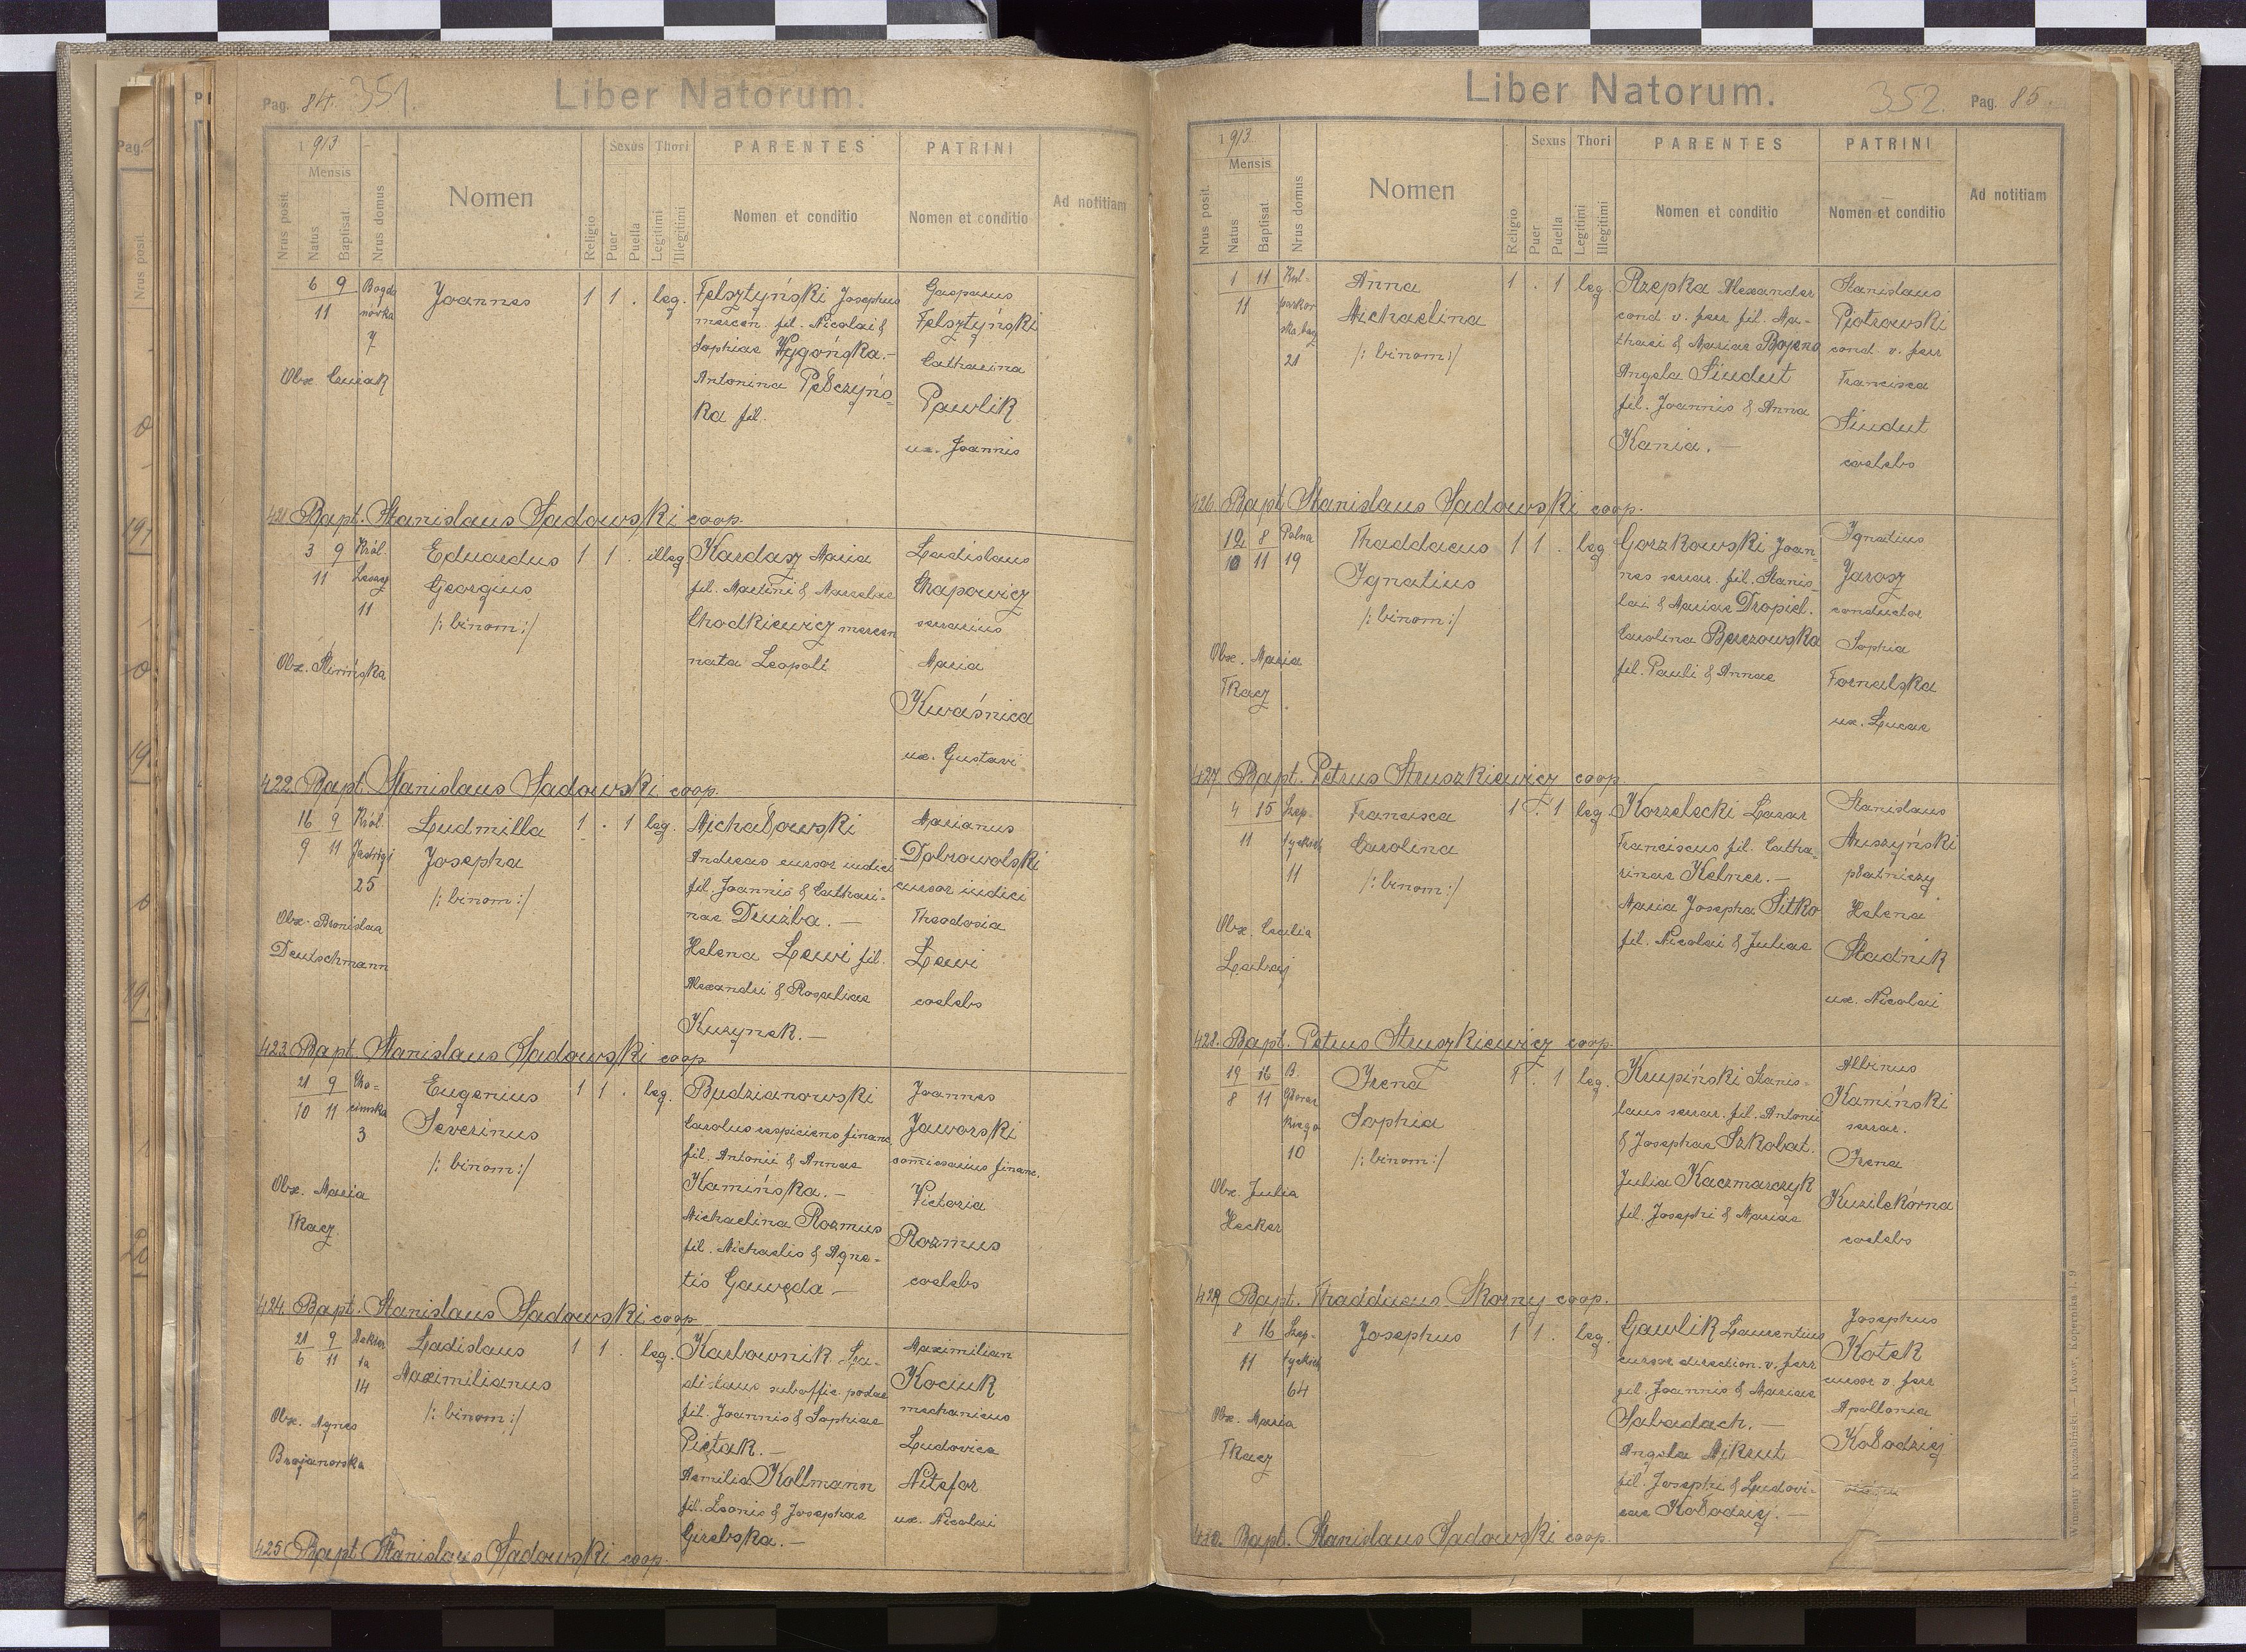 Pag. 84. 351.
Liber Natorum.
1913
Mensis
Nrus posit.
Natus
Baptisat.
Nrus domus
Nomen
Religio
Sexus
Puer
Puella
Thori
Legitimi
Illegitimi
PARENTES
Nomen et conditio
PATRINI
Nomen et conditio
Ad notitiam
6 9 Bogda
11 nówka
7
Joannes
1 1 . leg.
Felsztyński Josephus
mercen. fil. Nicolai &
Sophiae Wygońska.-
Antonina Pełczyńs-
ka fil.
Gasparus
Felsztyński
Catharina
Pawlik
ux. Joannis
421 Bapt. Stanislaus Sadowski coop.
3 9 Król.
11 Leszcz
11
Obx. Śliwińska
Eduardus
Georgius
/: binom :/
1 1 . illeg
Kardasz Maria
fil. Martini & Marcelae
Chodkiewicz mercen
nata Leopoli
Ladislaus
Chapowicz
serarius
Maria
Kwaśnica
ux. Gustavi
422. Bapt. Stanislaus Sadowski coop.
16 9 Król.
9 11 Jadwigi
25
Obx. Bronislava
Deutschmann
Ludmilla
Josepha
/: binom :/
1 . 1 leg.
Michałowski
Andreas cursor iudici
fil. Joannis & Cathari-
nae Drużba. -
Helena Lewi fil.
Alexandri & Rosaliae
Kurynek. -
Marianus
Dobrowolski
cursor iudici
Theodosia
Lewi
coelebs
423. Bapt. Stanislaus Sadowski coop
21 9 Cho-
10 11 cimska
3
Obx. Maria
Tkacz
Eugenius
Severinus
/: binom :/
1 1 . leg.
Budzianowski
Carolus respiciens financ.
fil. Antonii & Annae
Kamińska. -
Michaelina Rozmus
fil. Michaelis & Agne-
tis Gawęda -
Joannes
Jaworski
comissarius financ.
Victoria
Rozmus
coelebs
424. Bapt. Stanislaus Sadowski coop
21 9
6 11
14
Obx. Agnes
Brojanowska
Ladislaus
Maximilianus
/: binom :/
1 1 . leg.
Karbownik La-
dislaus suboffic. podat
fil. Joannis & Sophiae
Piętak. -
Aemilia Kollmann
fil. Leonis & Josephae
Girebska. -
Maximilian
Kociuk
mechanicus
Ludovica
Nitefor
ux. Nicolai
425 Bapt. Stanislaus Sadowski coop.
Liber Natorum.
352. Pag. 85.
1913
Mensis
Nrus posit.
Natus
Baptisat.
Nrus domus
Nomen
Religio
Sexus
Puer
Puella
Thori
Legitimi
Illegitimi
PARENTES
Nomen et conditio
PATRINI
Nomen et conditio
Ad notitiam
1 11
11
21
Anna
Michaelina
/: binom :/
1 . 1 leg
Rzepka Alexander
cond. v. ferr fil. Ma-
thaei & Mariae Bojsna
Angela Siudut
fil. Joannis & Anna
Kania. -
Stanislaus
Piotrowski
cond. v. ferr
Francisca
Siudut
coelebs
426. Bapt. Stanislaus Sadowski coop.
12 8 Polna
10 11 19
Obx. Maria
Tkacz
Thaddaeus
Ignatius
/: binom :/
1 1 . leg
Gorzkowski Joan-
nes serrar. fil. Stanis-
lai & Mariae Dropiel.
Carolina Berezowska
fil. Pauli & Annae
Ignatius
Jarosz
conductor
Sophia
Fornalska
ux. Lucae
427. Bapt. Petrus Struszkiewicz coop.
4 15 Szep-
11 tyckich
11
Obx. Cecilia
Francisca
Carolina
/: binom :/
1 . 1 leg.
Korzelecki Lazar
Franciscus fil. Catha-
rinae Kelner. -
Maria Josepha Sitko
fil. Nicolai & Juliae
Stanislaus
Muszyński
płatniczy
Helena
Stadnik
ux. Nicolai
428. Bapt. Petrus Struszkiewicz coop.
19 16 B.
8 11 Głowac
kiego
10
Obx. Julia
Hecker
Irena
Sophia
/: binom :/
1 . 1 leg.
Krupiński Stanis-
laus serrar. fil. Antonii
& Josephae Szkobat.
Julia Kaczmarczyk
fil. Josephi & Mariae
Albinus
Kamiński
serrar.
Irena
Kuzilekórna
coelebs
429 Bapt. Thaddaeus Skorny coop.
8 16 Szep-
11 tyckich
64
Obx. Maria
Tkacz
Josephus
1 1 . leg.
Gawlik Laurentius
cursor direction. v. ferr
fil. Joannis & Mariae
Sabadach. -
Angela Mikrut
fil. Josephi & Ludovi-
cae Kołodziej. -
Josephus
Kotek
cursor v. ferr
Apollonia
Kołodziej
430. Bapt. Stanislaus Sadowski coop.